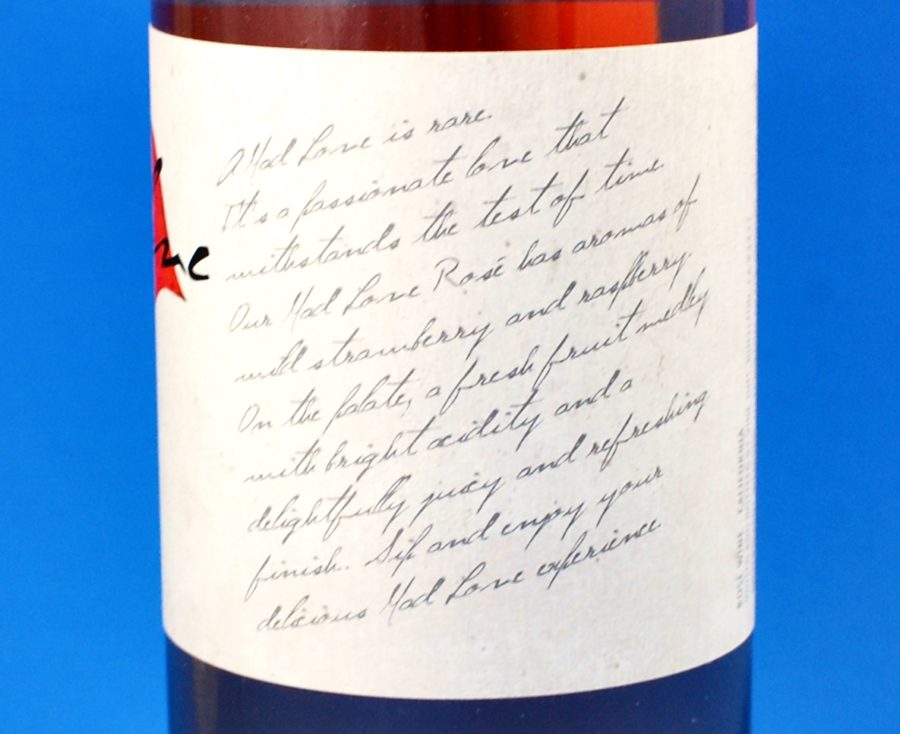 A Mad Love is rare.
It's a passionate love that
withstands the test of time.
Our Mad Love Rosé has aromas of
wild strawberry and raspberry.
On the palate, a fresh fruit medley
with bright acidity and a
delightfully juicy and refreshing
finish. Sip and enjoy your
delicious Mad Love experience
ROSÉ WINE CALIFORNIA